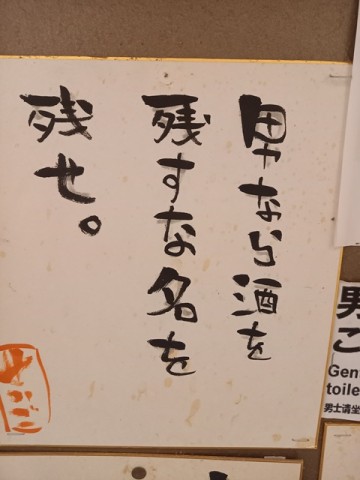 男なら酒を
残すな名を
残せ。
男
こ
Gen
toile
男士请坐